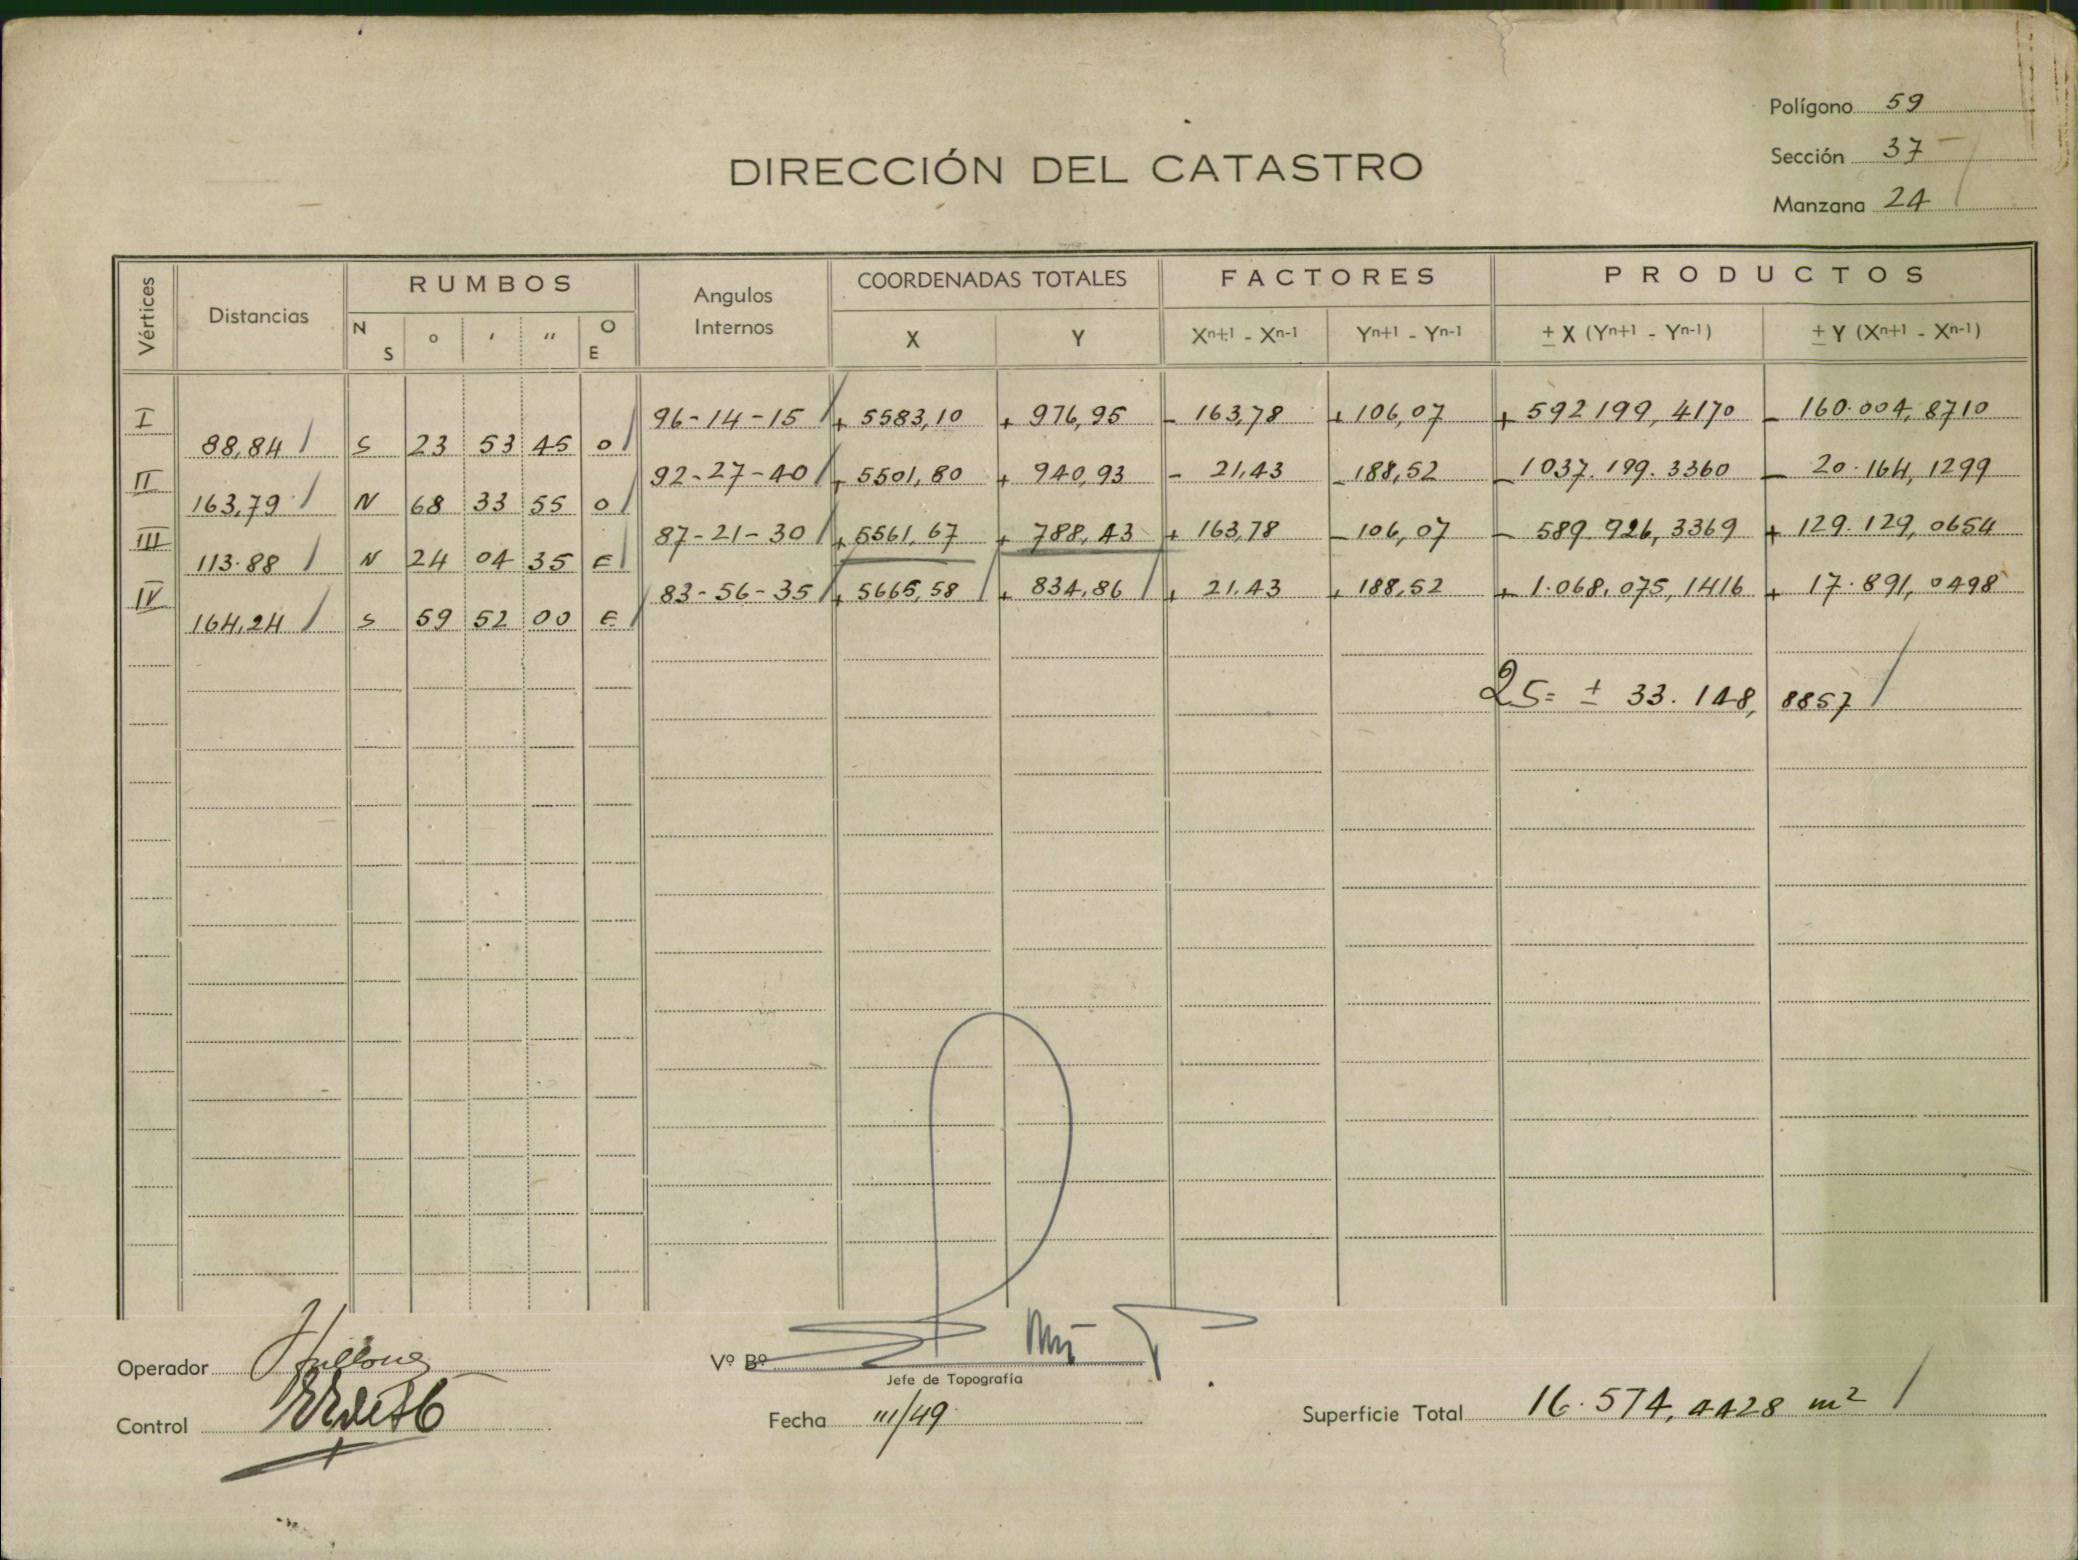 Polígono 59
DIRECCIÓN DEL CATASTRO
Sección 37
Manzana 24
Vértices Distancias RUMBOS Angulos Internos COORDENADAS TOTALES FACTORES PRODUCTOS
N S ° ' " O E X Y Xn+1 - Xn-1 Yn+1 - Yn-1 ± X (Yn+1 - Yn-1) ± Y (Xn+1 - Xn-1)
I 96-14-15 + 5583,10 + 976,95 - 163,78 + 106,07 + 592199,4170 - 160.004,8710
88,84 S 23 53 45 O
II 92-27-40 + 5501,80 + 940,93 - 21,43 - 188,52 - 1037.199.3360 - 20.164,1299
163,79 N 68 33 55 O
III 87-21-30 + 5561,67 + 788,43 + 163,78 - 106,07 - 589.926,3369 + 129.129,0654
113.88 N 24 04 35 E
IV 83-56-35 + 5665,58 + 834,86 + 21.43 + 188,52 + 1.068.075,1416 + 17.891,0498
164,24 S 59 52 00 E
2S= ± 33.148,8857
Operador
Vº Bº
Jefe de Topografía
Control
Fecha III/49
Superficie Total 16.574,4428 m²